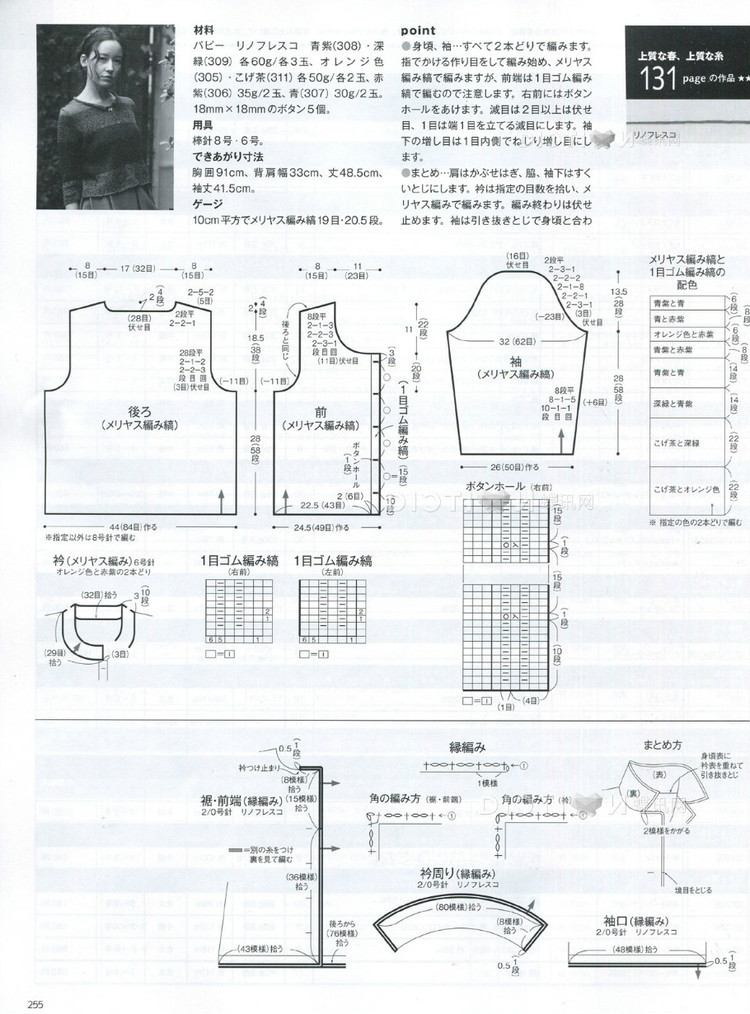 材料
パピー リノフレスコ 青紫(308)・深
緑(309) 各60g/各3玉、オレンジ色
(305)・こげ茶(311) 各50g/各2玉、赤
紫(306) 35g/2玉、青(307) 30g/2玉。
18mm×18mmのボタン5個。
用具
棒針8号・6号。
できあがり寸法
胸囲91cm、背肩幅33cm、丈48.5cm、
袖丈41.5cm。
ゲージ
10cm平方でメリヤス編み縞19目・20.5段。
point
●身頃、袖…すべて2本どりで編みます。
指でかける作り目をして編み始め、メリヤス
編み縞で編みますが、前端は1目ゴム編み
縞で編むので注意します。右前にはボタン
ホールをあけます。減目は2目以上は伏せ
目、1目は端1目を立てる減目にします。袖
下の増し目は1目内側でねじり増し目にし
ます。
●まとめ…肩はかぶせはぎ、脇、袖下はすく
いとじにします。衿は指定の目数を拾い、メ
リヤス編みで編みます。編み終わりは伏せ
止めます。袖は引き抜きとじで身頃と合わ
上質な春、上質な糸
131 pageの作品 ★★
リノフレスコ
8
(15目)
17(32目)
8
(15目)
2
(4段)
2-5-2
(5目)
(28目)
伏せ目
2段平
2-2-1
28段平
2-1-2
2-2-3
段目回
(3目)伏せ目
(-11目)
後ろ
(メリヤス編み縞)
44(84目)作る
※指定以外は8号針で編む
2
(4段)
18.5
(38段)
28
(58段)
8
(15目)
11
(23目)
後ろと同じ
8段平
2-1-3
2-2-3
2-3-1
段目回
(11目)伏せ目
(-11目)
前
(メリヤス編み縞)
ボタンホール
(1段)
2(6目)
22.5(43目)
24.5(49目)作る
11
(22段)
(3段)
(20段)
(1目ゴム編み縞)
○=(15段)
(10段)
(16目)
伏せ目
2段平
2-3-1
2-2-2
2-1-8
2-2-2
2-3-1
(3目)
伏せ目
(-23目)
32(62目)
袖
(メリヤス編み縞)
8段平
8-1-5
10-1-1
段目回
(+6目)
26(50目)作る
13.5
(28段)
28
(58段)
メリヤス編み縞と
1目ゴム編み縞の
配色
青紫と青
青と赤紫
オレンジ色と赤紫
青紫と赤紫
青紫と青
深緑と青紫
こげ茶と深緑
こげ茶とオレンジ色
(6段)
(8段)
(6段)
(8段)
(14段)
(14段)
(22段)
(22段)
※指定の色の2本どりで編む
ボタンホール(右前)
(15段)
(1段)
(15段)
(1段)
(10段)
□=|
(4目)
(1目)
衿(メリヤス編み)6号針
オレンジ色と赤紫の2本どり
(32目)拾う
3
(10段)
(29目)
拾う
(3目)
1目ゴム編み縞
(右前)
2
1
6 5 1
□=|
1目ゴム編み縞
(左前)
2
1
6 5 1
□=|
0.5(1段)
衿つけ止まり
(8模様)
拾う
(15模様)
拾う
裾・前端(縁編み)
2/0号針 リノフレスコ
=別の糸をつけ
裏を見て編む
(36模様)
拾う
後ろから
(76模様)
拾う
(43模様)拾う
縁編み
①
1模様
角の編み方(裾・前端)
①
角の編み方(衿)
①
衿周り(縁編み)
2/0号針 リノフレスコ
(80模様)拾う
(8模様)
拾う
0.5(1段)
まとめ方
身頃表に
衿表を重ねて
引き抜きとじ
(表)
(裏)
2模様をかがる
境目をとじる
袖口(縁編み)
2/0号針 リノフレスコ
(48模様)拾う
0.5(1段)
255